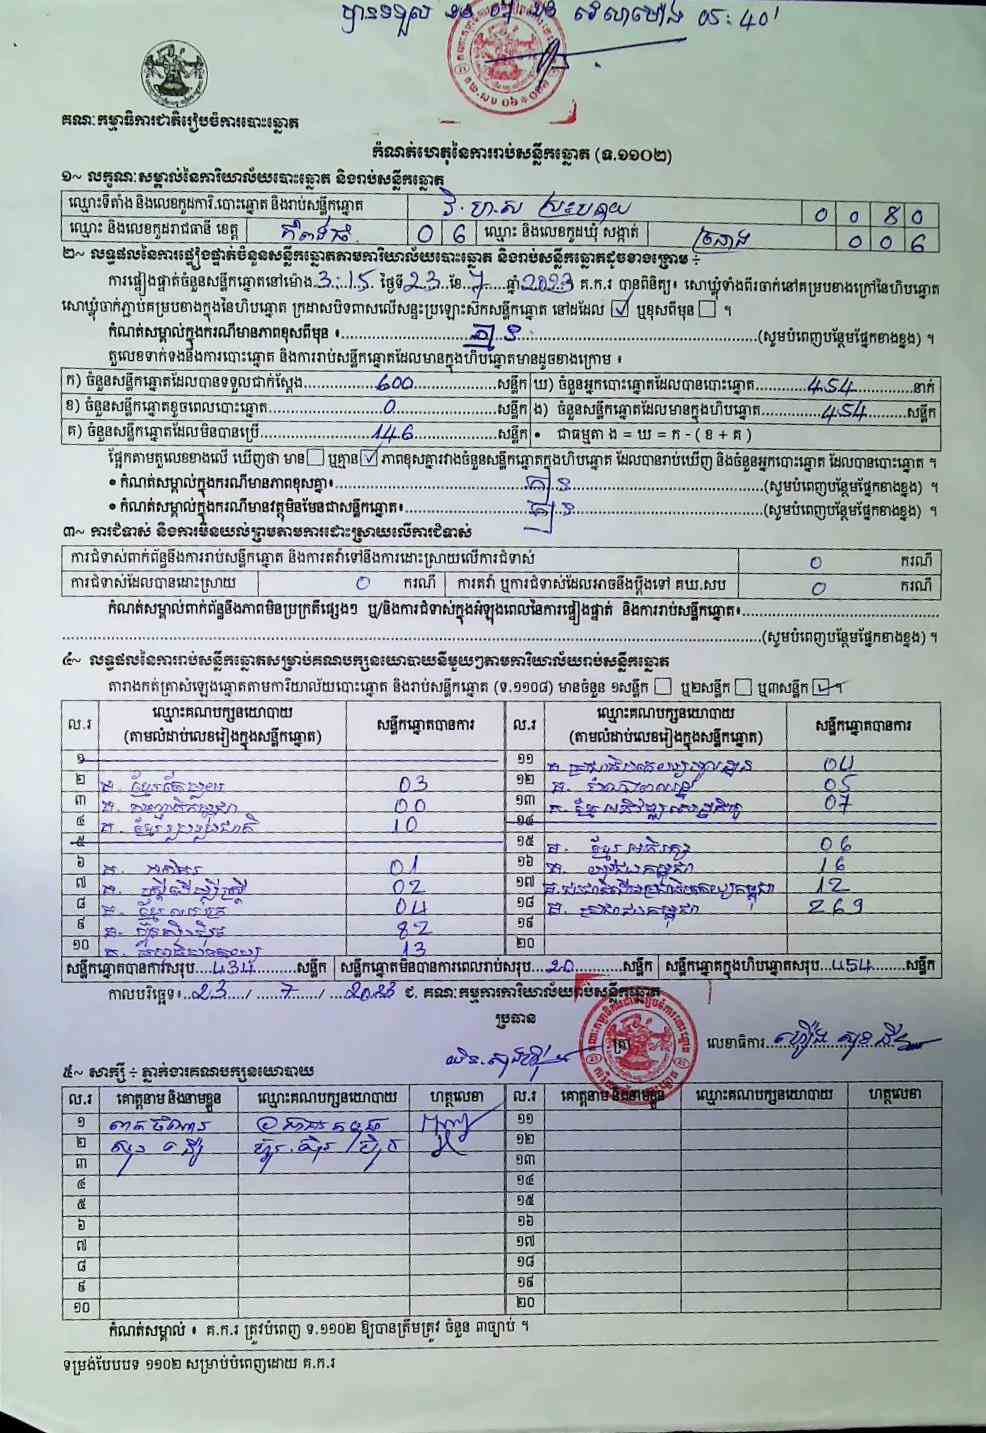 បានទទួល ២៣ ០៧ ២៣ វេលាម៉ោង 05:40'
គណៈកម្មាធិការជាតិរៀបចំការបោះឆ្នោត
កំណត់ហេតុនៃការរាប់សន្លឹកឆ្នោត (ទ.១១០២)
១~ លក្ខណៈសម្គាល់នៃការិយាល័យបោះឆ្នោត និងរាប់សន្លឹកឆ្នោត
ឈ្មោះទីតាំង និងលេខកូដការិ.បោះឆ្នោត និងរាប់សន្លឹកឆ្នោត 0 0 8 0
ឈ្មោះ និងលេខកូដរាជធានី ខេត្ត កំពង់ធំ 0 6 ឈ្មោះ និងលេខកូដឃុំ សង្កាត់ 0 0 6
២~ លទ្ធផលនៃការផ្ទៀងផ្ទាត់ចំនួនសន្លឹកឆ្នោតតាមការិយាល័យបោះឆ្នោត និងរាប់សន្លឹកឆ្នោតដូចខាងក្រោម ÷
ការផ្ទៀងផ្ទាត់ចំនួនសន្លឹកឆ្នោតនៅម៉ោង 3:15 ថ្ងៃទី 23 ខែ 7 ឆ្នាំ 2023 គ.ក.រ បានពិនិត្យ៖ សោឃ្លុំទាំងពីរចាក់នៅគម្របខាងក្រៅនៃហិបឆ្នោត
សោឃ្លុំចាក់ភ្ជាប់គម្របខាងក្នុងនៃហិបឆ្នោត ក្រដាសបិទពាសលើសន្ទះប្រឡោះស៊កសន្លឹកឆ្នោត នៅដដែល ☑ ឬខុសពីមុន ☐ ។
កំណត់សម្គាល់ក្នុងករណីមានភាពខុសពីមុន ៖ គ្មាន (សូមបំពេញបន្ថែមផ្នែកខាងខ្នង) ។
តួលេខទាក់ទងនឹងការបោះឆ្នោត និងការរាប់សន្លឹកឆ្នោតដែលមានក្នុងហិបឆ្នោតមានដូចខាងក្រោម ៖
ក) ចំនួនសន្លឹកឆ្នោតដែលបានទទួលជាក់ស្តែង 600 សន្លឹក ឃ) ចំនួនអ្នកបោះឆ្នោតដែលបានបោះឆ្នោត 454 នាក់
ខ) ចំនួនសន្លឹកឆ្នោតខូចពេលបោះឆ្នោត 0 សន្លឹក ង) ចំនួនសន្លឹកឆ្នោតដែលមានក្នុងហិបឆ្នោត 454 សន្លឹក
គ) ចំនួនសន្លឹកឆ្នោតដែលមិនបានប្រើ 146 សន្លឹក • ជាធម្មតា ង = ឃ = ក - ( ខ + គ )
ផ្អែកតាមតួលេខខាងលើ ឃើញថា មាន ☐ ឬគ្មាន ☑ ភាពខុសគ្នារវាងចំនួនសន្លឹកឆ្នោតក្នុងហិបឆ្នោត ដែលបានរាប់ឃើញ និងចំនួនអ្នកបោះឆ្នោត ដែលបានបោះឆ្នោត ។
• កំណត់សម្គាល់ក្នុងករណីមានភាពខុសគ្នា៖ គ្មាន (សូមបំពេញបន្ថែមផ្នែកខាងខ្នង) ។
• កំណត់សម្គាល់ក្នុងករណីមានវត្ថុមិនមែនជាសន្លឹកឆ្នោត៖ គ្មាន (សូមបំពេញបន្ថែមផ្នែកខាងខ្នង) ។
៣~ ការជំទាស់ និងការមិនយល់ព្រមតាមការដោះស្រាយលើការជំទាស់
ការជំទាស់ពាក់ព័ន្ធនឹងការរាប់សន្លឹកឆ្នោត និងការតវ៉ាទៅនឹងការដោះស្រាយលើការជំទាស់ 0 ករណី
ការជំទាស់ដែលបានដោះស្រាយ 0 ករណី ការតវ៉ា ឬការជំទាស់ដែលអាចនឹងប្តឹងទៅ គឃ.សប 0 ករណី
កំណត់សម្គាល់ពាក់ព័ន្ធនឹងភាពមិនប្រក្រតីផ្សេងៗ ឬ/និងការជំទាស់ក្នុងអំឡុងពេលនៃការផ្ទៀងផ្ទាត់ និងការរាប់សន្លឹកឆ្នោត៖
(សូមបំពេញបន្ថែមផ្នែកខាងខ្នង) ។
៤~ លទ្ធផលនៃការរាប់សន្លឹកឆ្នោតសម្រាប់គណបក្សនយោបាយនីមួយៗតាមការិយាល័យរាប់សន្លឹកឆ្នោត
តារាងកត់ត្រាសំឡេងឆ្នោតតាមការិយាល័យបោះឆ្នោត និងរាប់សន្លឹកឆ្នោត (ទ.១១០៨) មានចំនួន ១សន្លឹក ☐ ឬ២សន្លឹក ☐ ឬ៣សន្លឹក ☑ ។
ល.រ ឈ្មោះគណបក្សនយោបាយ (តាមលំដាប់លេខរៀងក្នុងសន្លឹកឆ្នោត) សន្លឹកឆ្នោតបានការ ល.រ ឈ្មោះគណបក្សនយោបាយ (តាមលំដាប់លេខរៀងក្នុងសន្លឹកឆ្នោត) សន្លឹកឆ្នោតបានការ
១ ១១ 04
២ 03 ១២ 05
៣ 00 ១៣ 07
៤ 10 ១៤
៥ ១៥ 06
៦ 01 ១៦ 16
៧ 02 ១៧ 12
៨ 04 ១៨ គ. ប្រជាជនកម្ពុជា 269
៩ 82 ១៩
១០ 13 ២០
សន្លឹកឆ្នោតបានការសរុប 434 សន្លឹក សន្លឹកឆ្នោតមិនបានការពេលរាប់សរុប 20 សន្លឹក សន្លឹកឆ្នោតក្នុងហិបឆ្នោតសរុប 454 សន្លឹក
កាលបរិច្ឆេទ៖ 23 / 7 / 2023 ៩. គណៈកម្មការការិយាល័យរាប់សន្លឹកឆ្នោត
ប្រធាន
លេខាធិការ
៥~ សាក្សី ÷ ភ្នាក់ងារគណបក្សនយោបាយ
ល.រ គោត្តនាម និងនាមខ្លួន ឈ្មោះគណបក្សនយោបាយ ហត្ថលេខា ល.រ គោត្តនាម និងនាមខ្លួន ឈ្មោះគណបក្សនយោបាយ ហត្ថលេខា
១ ១១
២ ១២
៣ ១៣
៤ ១៤
៥ ១៥
៦ ១៦
៧ ១៧
៨ ១៨
៩ ១៩
១០ ២០
កំណត់សម្គាល់ ៖ គ.ក.រ ត្រូវបំពេញ ទ.១១០២ ឱ្យបានត្រឹមត្រូវ ចំនួន ៣ច្បាប់ ។
ទម្រង់បែបបទ ១១០២ សម្រាប់បំពេញដោយ គ.ក.រ